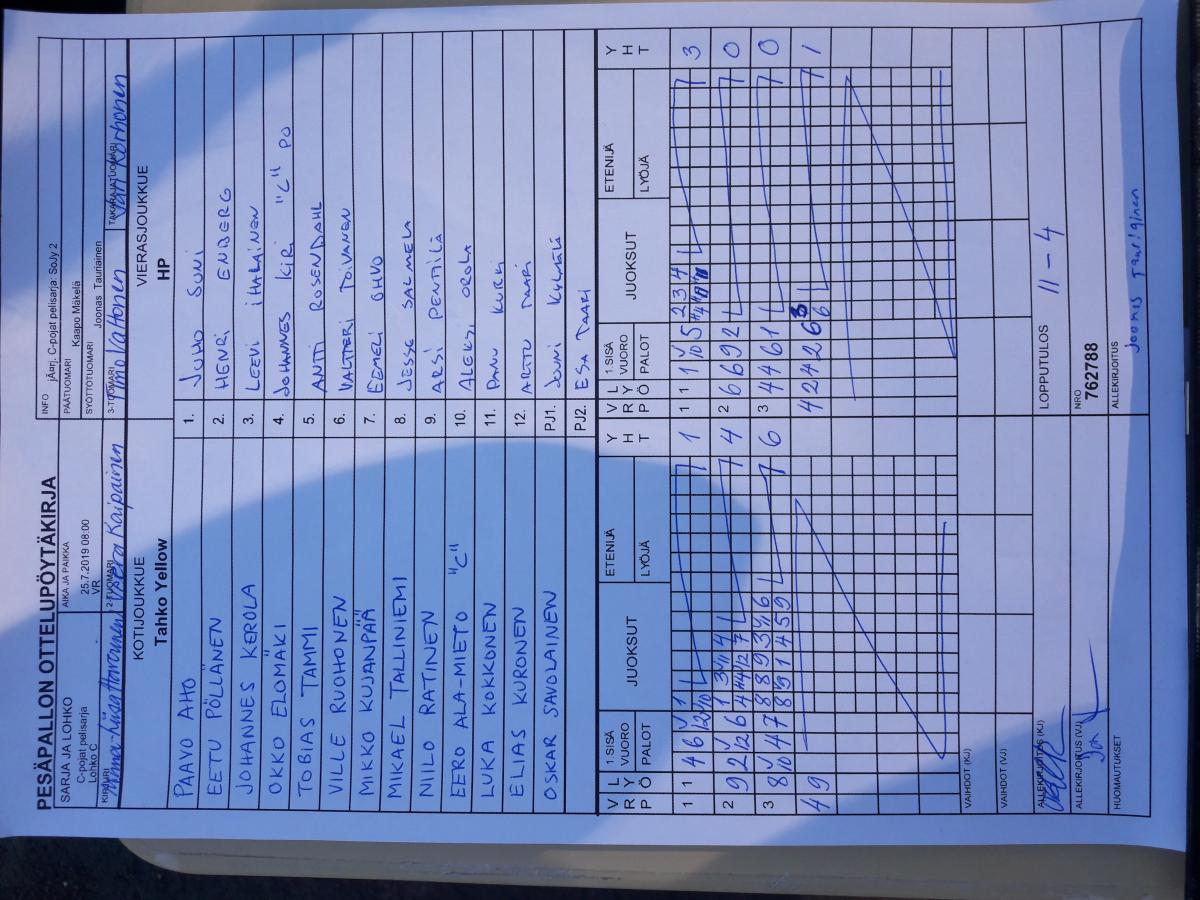 PESÄPALLON OTTELUPÖYTÄKIRJA
SARJA JA LOHKO
C-pojat pelisarja
Lohko C
AIKA JA PAIKKA
25.7.2019 08:00
VR
INFO
C-pojat pelisarja: SoJy 2
PÄÄTUOMARI
Kaapo Mäkelä
SYÖTTÖTUOMARI
Joonas Tauriainen
KIRJURI
2-TUOMARI
Veera Kaipainen
3-TUOMARI
TAKARAJATUOMARI
Jari Korhonen
KOTIJOUKKUE
Tahko Yellow
VIERASJOUKKUE
HP
PAAVO AHO 1. JUHO SUNI
EETU PÖLLÄNEN 2. HENRI ENBERG
JOHANNES KEROLA 3. LEEVI IHALAINEN
OKKO ELOMÄKI 4. JOHANNES KIRI "C" PO
TOBIAS TAMMI 5. ANTTI ROSENDAHL
VILLE RUOHONEN 6. VALTTERI TOIVANEN
MIKKO KUJANPÄÄ 7. EEMELI OHVO
MIKAEL TALLINIEMI 8. JESSE SALMELA
NIILO RATINEN 9. ARSI PENTTILÄ
EERO ALA-MIETO "C" 10. ALEKSI OROLA
LUKA KOKKONEN 11. PANU KURKI
ELIAS KURONEN 12. ARTTU TAARI
OSKAR SAVOLAINEN PJ1. JOUNI
PJ2. ESA TAARI
V R P L Y Ö 1.SISÄ VUORO PALOT JUOKSUT ETENIJÄ LYÖJÄ Y H T V R P L Y Ö 1.SISÄ VUORO PALOT JUOKSUT ETENIJÄ LYÖJÄ Y H T
1 1 4 6 1 1 1 1 10 5 2 3 4 3
2 9 2 12 6 1 3 4 4 2 6 6 9 2 0
3 8 10 4 7 8 8 9 3 6 6 3 4 4 6 1 0
4 9 4 2 4 2 6 1
VAIHDOT (KJ)
VAIHDOT (VJ)
ALLEKIRJOITUS (KJ)
ALLEKIRJOITUS (VJ)
HUOMAUTUKSET
LOPPUTULOS 11 - 4
NRO
762788
ALLEKIRJOITUS
Joonas Tauriainen